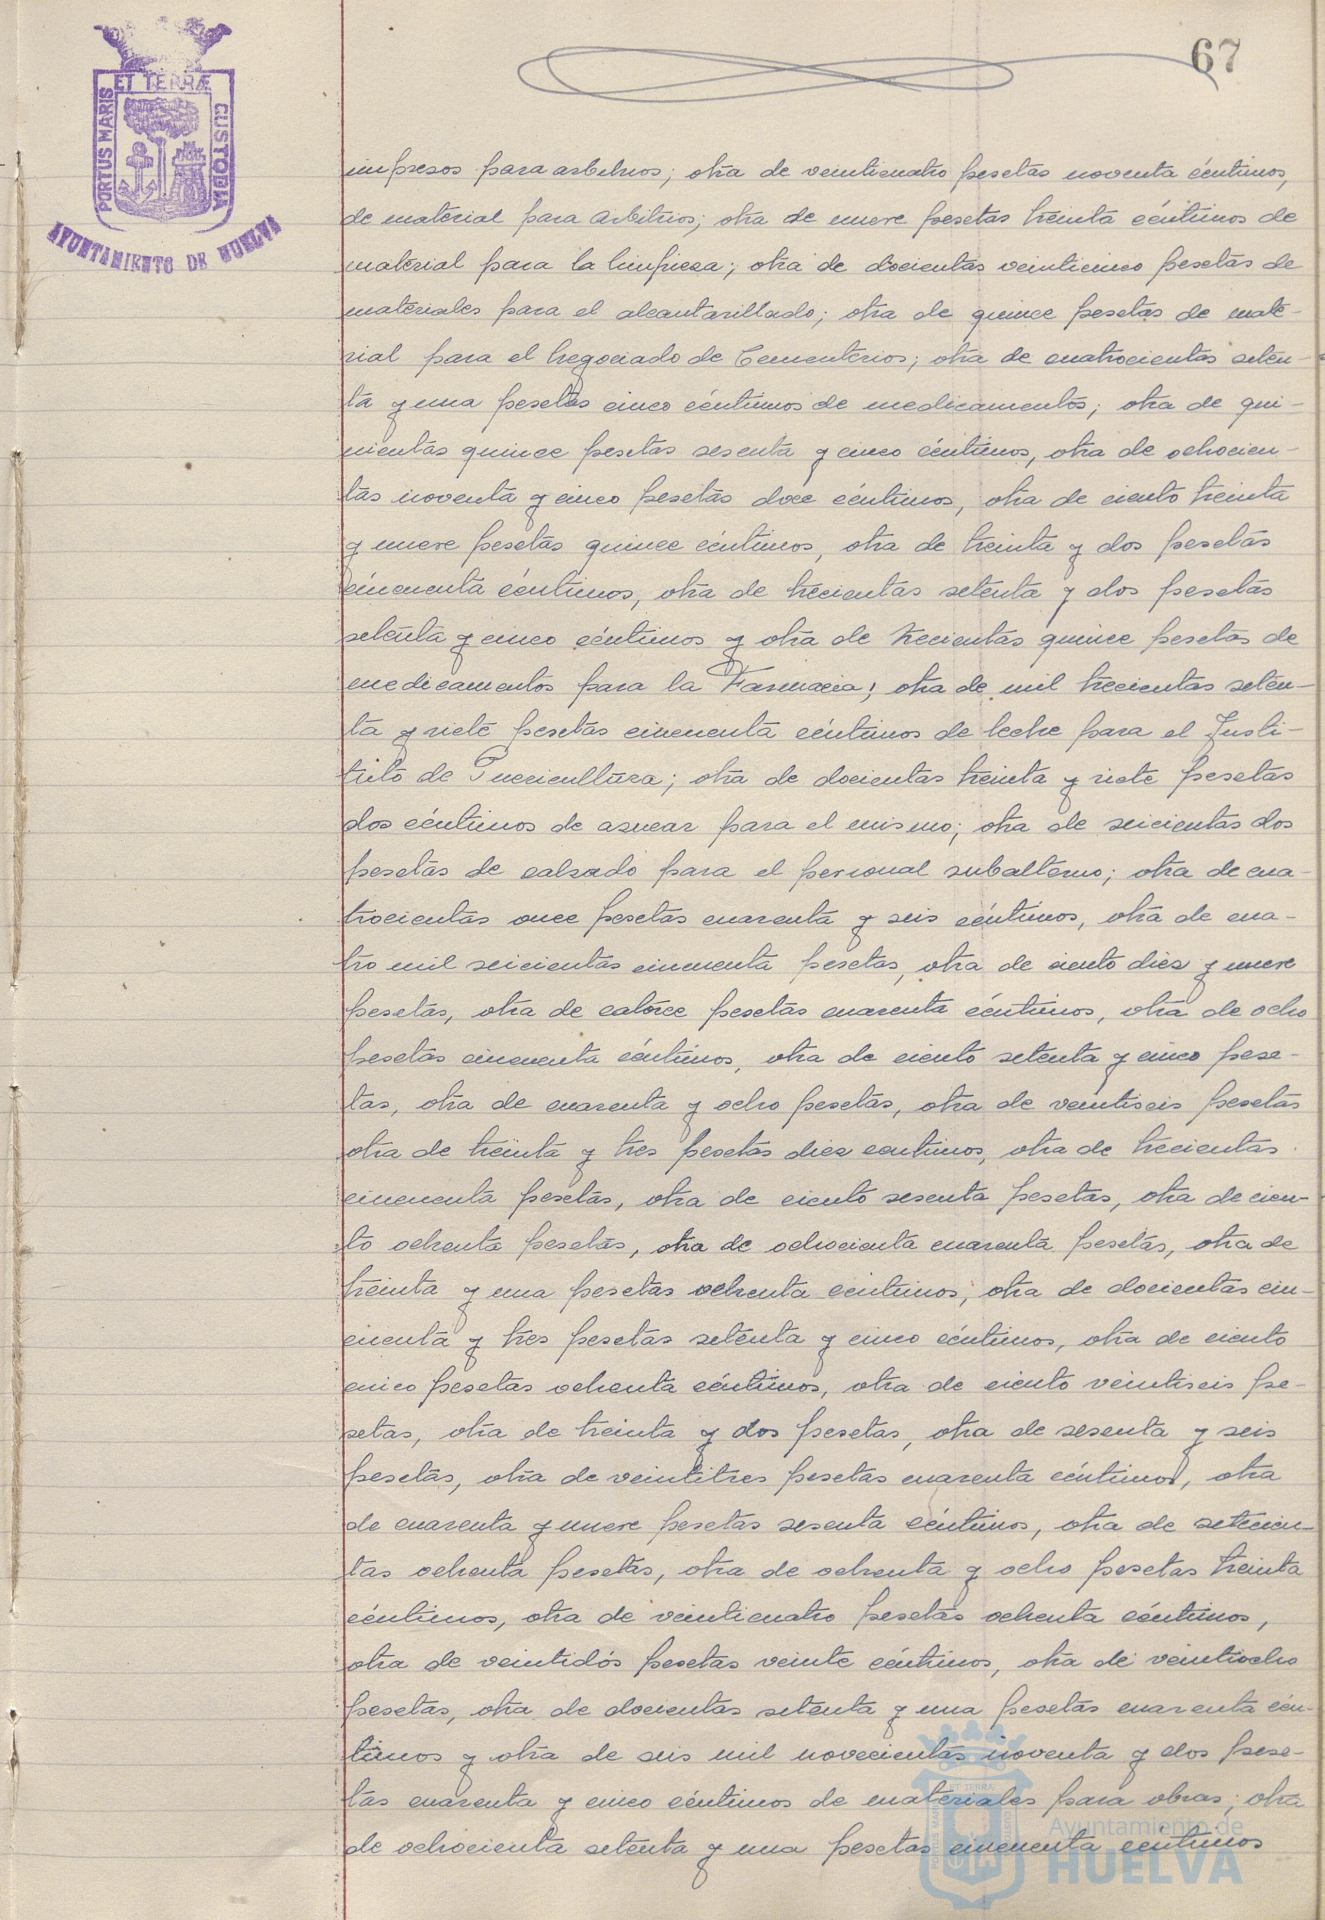 67
ET TERRÆ
PORTUS MARIS
CUSTODIA
AYUNTAMIENTO DE HUELVA
impresos para arbitrios; otra de veinticuatro pesetas noventa céntimos,
de material para arbitrios; otra de nueve pesetas treinta céntimos de
material para la limpieza; otra de docientas veinticinco pesetas de
materiales para el alcantarillado; otra de quince pesetas de mate-
rial para el Negociado de Cementerios; otra de cuatrocientas seten-
ta y una pesetas cinco céntimos de medicamentos; otra de qui-
nientas quince pesetas sesenta y cinco céntimos, otra de ochocien-
tas noventa y cinco pesetas doce céntimos, otra de ciento treinta
y nueve pesetas quince céntimos, otra de treinta y dos pesetas
cincuenta céntimos, otra de trecientas setenta y dos pesetas
setenta y cinco céntimos y otra de trecientas quince pesetas de
medicamentos para la Farmacia; otra de mil trecientas seten-
ta y siete pesetas cincuenta céntimos de leche para el Insti-
tuto de Puericultura; otra de docientas treinta y siete pesetas
dos céntimos de azucar para el mismo; otra de seicientas dos
pesetas de calzado para el personal subalterno; otra de cua-
trocientas once pesetas cuarenta y seis céntimos, otra de cua-
tro mil seicientas cincuenta pesetas, otra de ciento diez y nueve
pesetas, otra de catorce pesetas cuarenta céntimos, otra de ocho
pesetas cincuenta céntimos, otra de ciento setenta y cinco pese-
tas, otra de cuarenta y ocho pesetas, otra de veintiseis pesetas
otra de treinta y tres pesetas diez centimos, otra de trecientas
cincuenta pesetas, otra de ciento sesenta pesetas, otra de cien-
to ochenta pesetas, otra de ochocienta cuarenta pesetas, otra de
treinta y una pesetas ochenta céntimos, otra de docientas cin-
cuenta y tres pesetas setenta y cinco céntimos, otra de ciento
cinco pesetas ochenta céntimos, otra de ciento veintiseis pe-
setas, otra de treinta y dos pesetas, otra de sesenta y seis
pesetas, otra de veintitres pesetas cuarenta céntimos, otra
de cuarenta y nueve pesetas sesenta céntimos, otra de setecien-
tas ochenta pesetas, otra de ochenta y ocho pesetas treinta
céntimos, otra de veinticuatro pesetas ochenta céntimos,
otra de veintidós pesetas veinte céntimos, otra de veintiocho
pesetas, otra de docientas setenta y una pesetas cuarenta cén-
timos y otra de seis mil novecientas noventa y dos pese-
tas cuarenta y cinco céntimos de materiales para obras; otra
de ochocienta setenta y una pesetas cincuenta céntimos
Ayuntamiento de
HUELVA